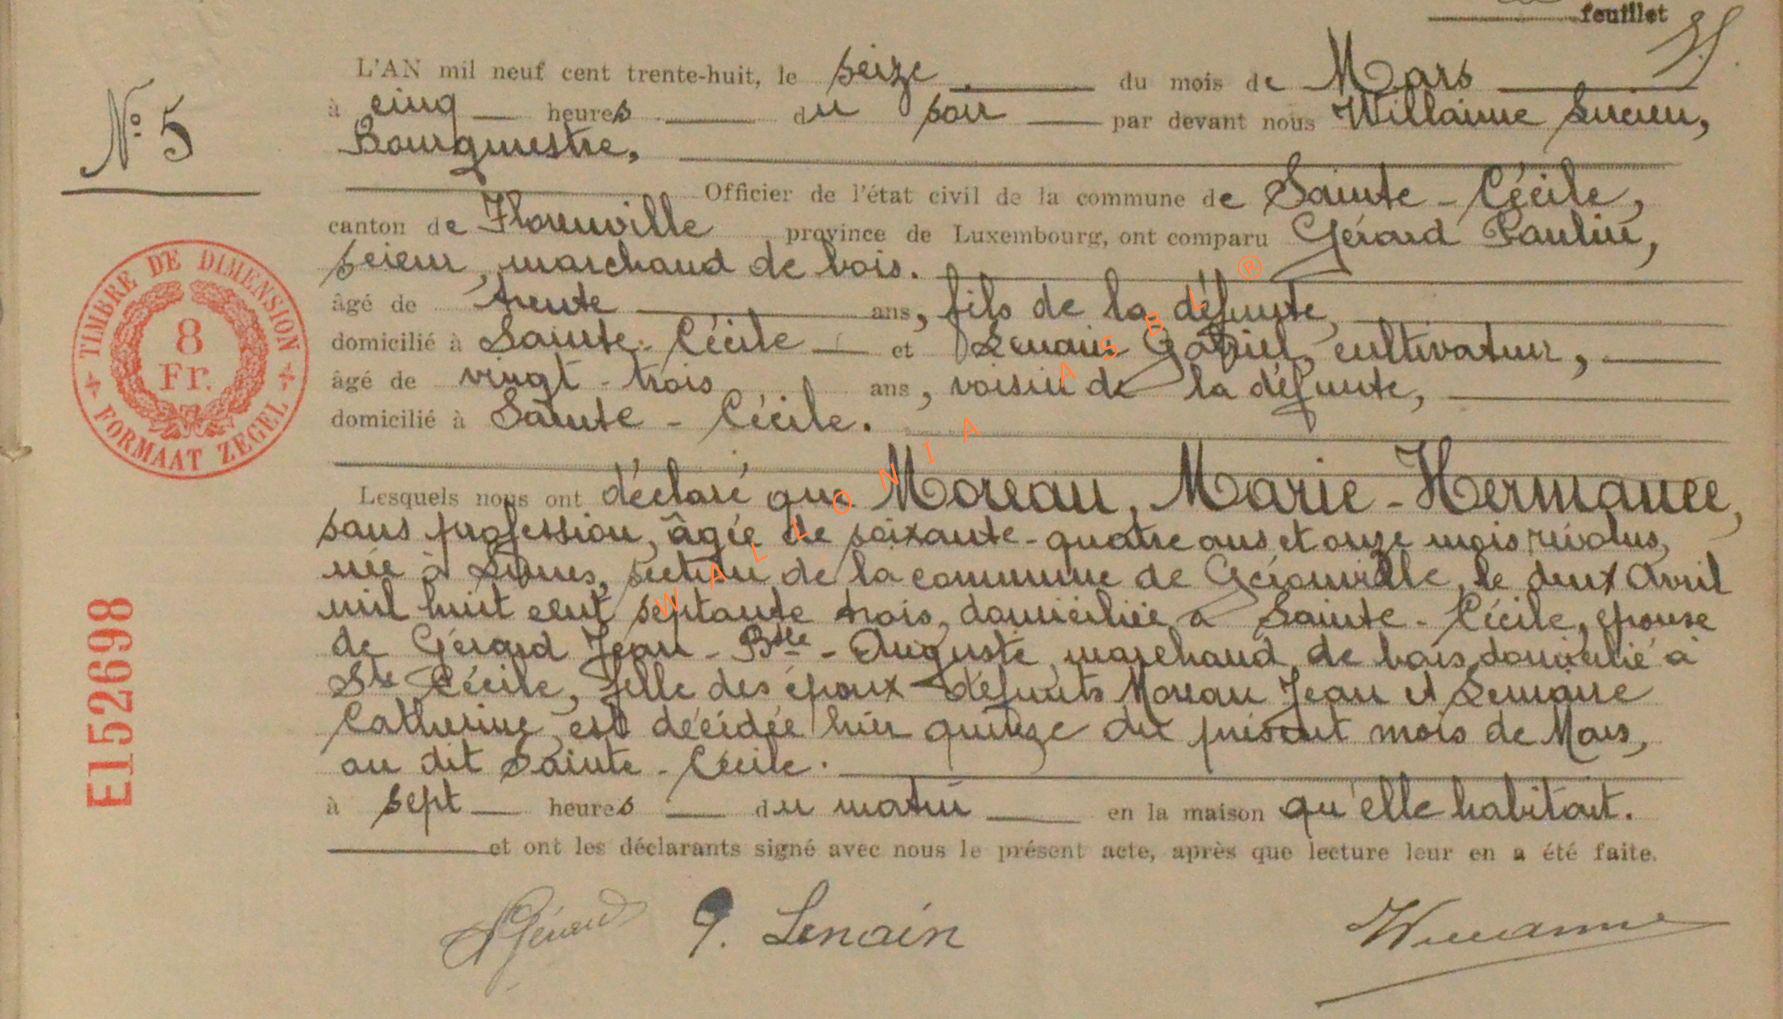 feuillet
N° 5
L'AN mil neuf cent trente-huit, le seize du mois de Mars
à cinq heures du soir par devant nous Willaime Lucien,
Bourgmestre,
Officier de l'état civil de la commune de Sainte-Cécile,
canton de Florenville province de Luxembourg, ont comparu Gérard Paulin,
scieur, marchand de bois.
âgé de trente ans, fils de la défunte,
domicilié à Sainte-Cécile et Lenain Gabriel, cultivateur,
âgé de vingt-trois ans, voisin de la défunte,
domicilié à Sainte-Cécile.
Lesquels nous ont déclaré que Moreau, Marie-Hermance,
sans profession, âgée de soixante-quatre ans et onze mois révolus,
née à section de la commune de Gérouville, le deux Avril
mil huit cent septante trois, domiciliée à Sainte-Cécile, épouse
de Gérard Jean-Bte-Auguste, marchand de bois, domicilié à
Ste Cécile, fille des époux défunts Moreau Jean et Lemaire
Catherine, est décédée hier quinze du présent mois de Mars,
au dit Sainte-Cécile.
à sept heures du matin en la maison qu'elle habitait.
et ont les déclarants signé avec nous le présent acte, après que lecture leur en a été faite.
Gérard G. Lenain Willaime
TIMBRE DE DIMENSION
8
Fr.
FORMAAT ZEGEL
E1152698
WALLONIA ASBL ®